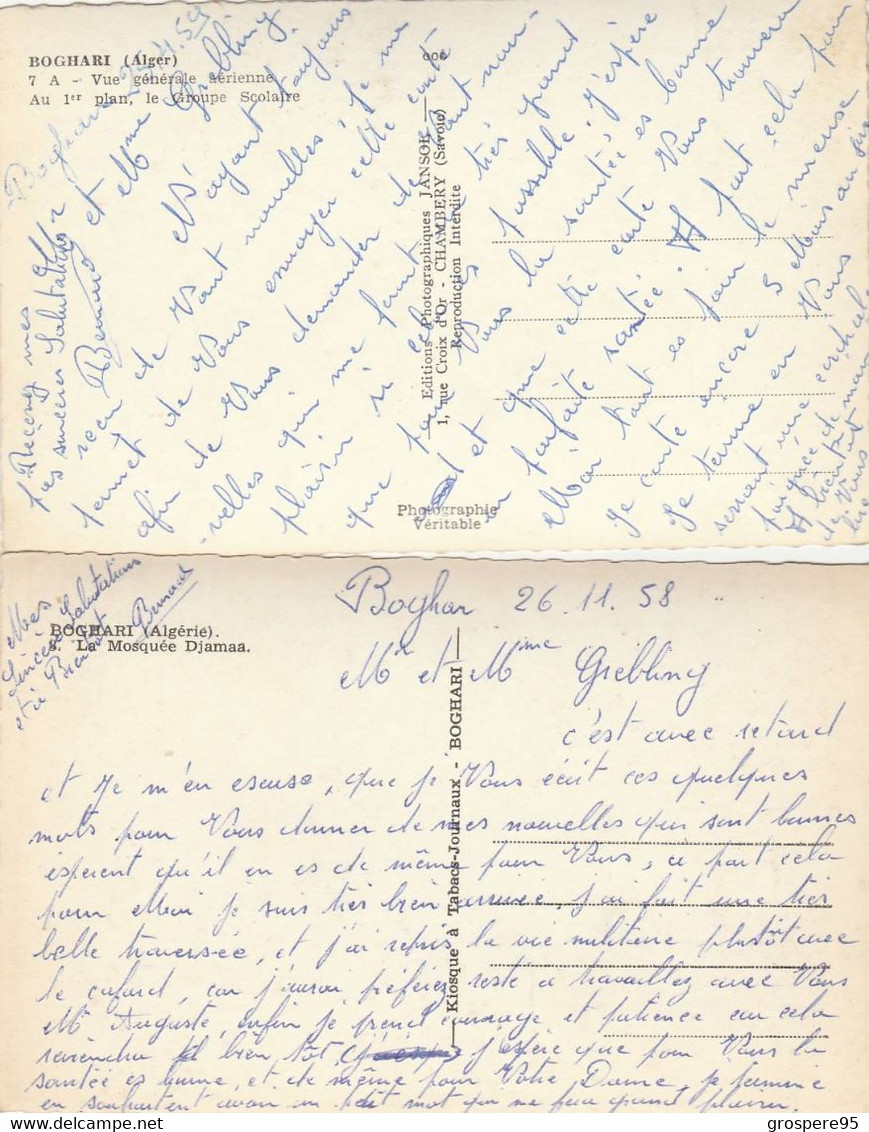 BOGHARI (Alger)
7 A - Vue générale aérienne
Au 1er plan, le Groupe Scolaire
Editions Photographiques JANSOL
1, rue Croix d'Or - CHAMBERY (Savoie)
Reproduction Interdite
Photographie
Véritable
Boghar
Mr et Mme Grebling
N'ayant toujours
pas reçu de Vont nouvelles, je me
permet de Vous envoyer cette carte
afin de Vous demander de Vont nou-
velles qui me feront très grand
plaisir si cela es possible. j'espère
que pour Vous la santée es bonne
et que cette carte Vous trouvera
en parfaite santée. A part cela pour
Moi tout es pour le mieuse
je conte encore 5 Mois au jus
je termine en Vous
serrant une cordiale
poignée de main
et bientôt
de Vous
lire
Recevez mes
plus sincères Salutations
Bernard
BOGHARI (Algérie).
8. La Mosquée Djamaa.
Kiosque à Tabacs-Journaux - BOGHARI
Mes
Sincère Salutations
et à Bientot
Bernard
Boghar 26.11.58
Mr et Mme Grebling
c'est avec retard
et je m'en escuse, que je Vous écrit ces quelques
mots pour Vous donner de mes nouvelles qui sont bonnes
esperent qu'il en es de même pour Vous, à part cela
pour Moi je suis très bien arrivée, j'ai fait une très
belle traversée, et j'ai repris la vie militaire plutôt avec
le cafard, car j'aurai préférez resté à travaillez avec Vous
Mr Auguste, enfin je prend courage et patience car cela
reviendra bien tôt, j'espère que pour Vous la
santée es bonne, et de même pour Votre Dame, je termine
en souhaitent avoir un petit mot qui me fera grand plaisir.
grospere95